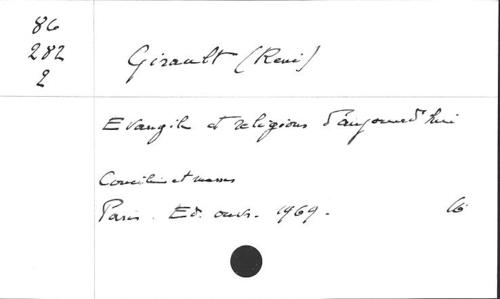 86
282
2
Girault (René)
Evangile et religions d'aujourd'hui
Concile et masses
Paris. Ed. ouvr. 1969.
16